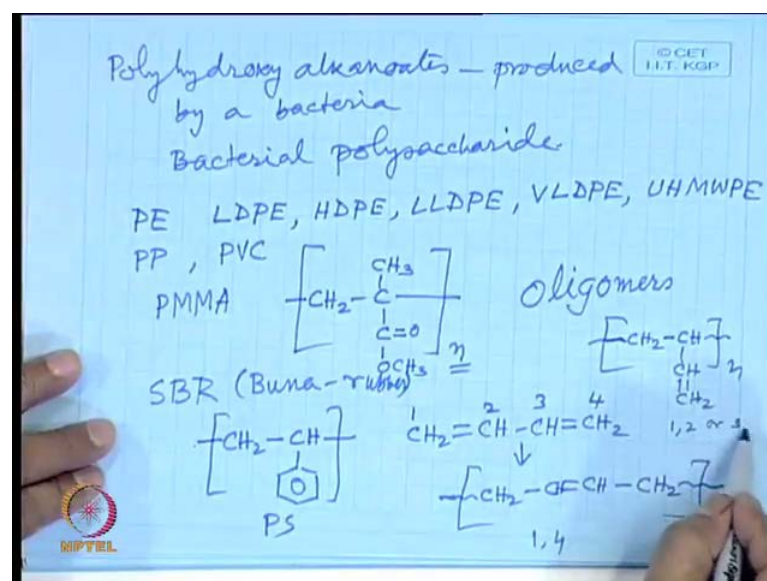 Polyhydroxy alkanoates – produced
by a bacteria
© CET
I.I.T. KGP
Bacterial polysaccharide.
PE LDPE, HDPE, LLDPE, VLDPE, UHMWPE
PP, PVC
PMMA
CH3
CH2 – C
C=O
OCH3
n
Oligomers
CH2 – CH
n
CH
CH2
1,2 or 3
SBR (Buna-rubber)
CH2 – CH
PS
1 2 3 4
CH2 = CH – CH = CH2
CH2 – CH=CH – CH2
1,4
NPTEL